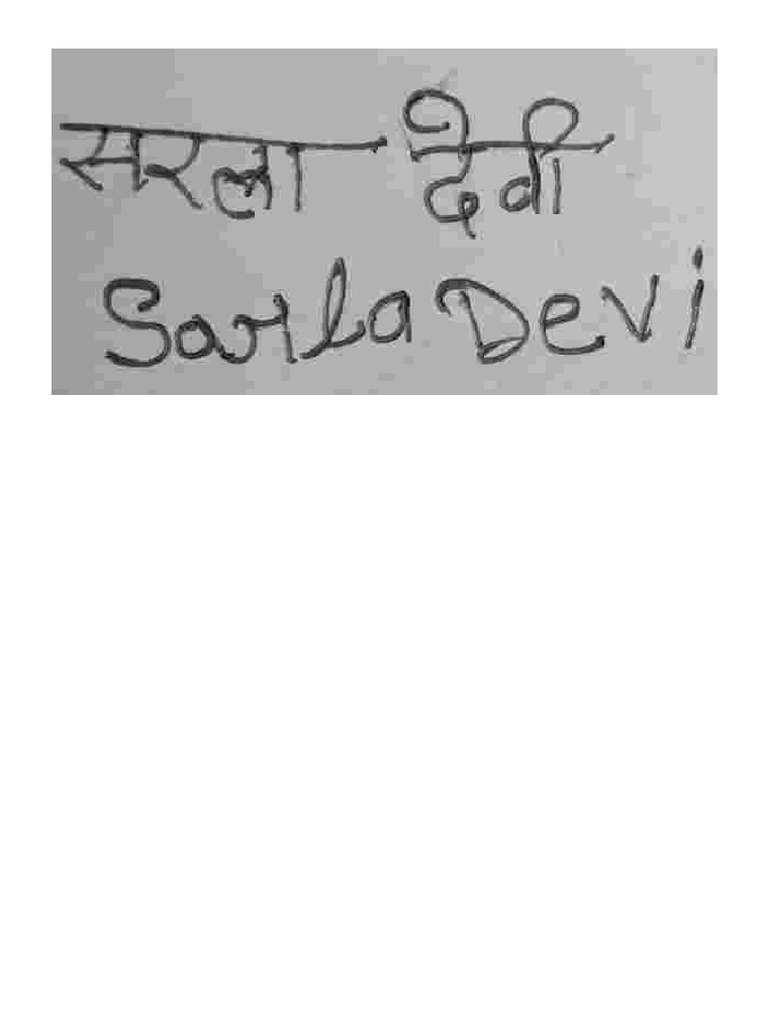 सरला देवी
Sarla Devi